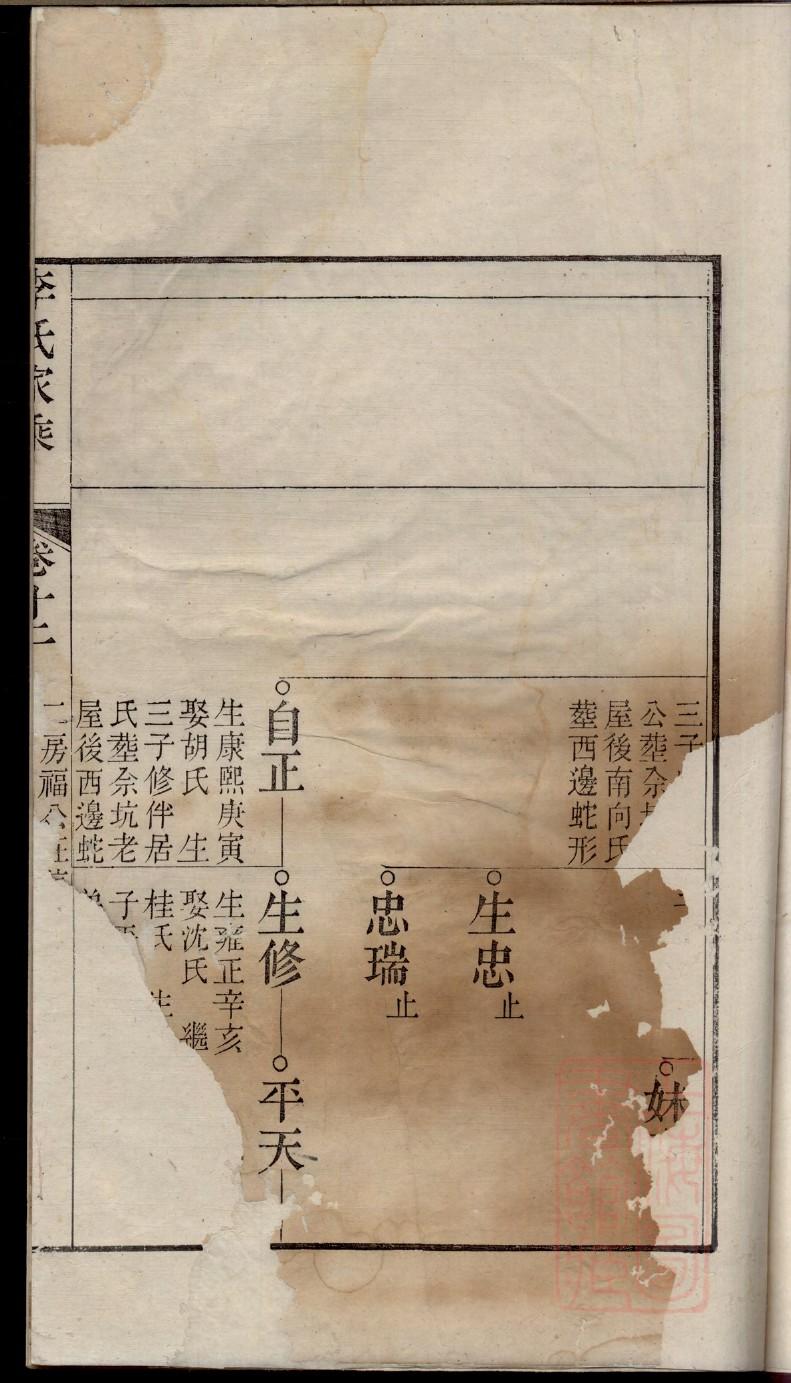 三子
公塟佘
屋後南向氏
塟西邊蛇形
妹
生忠止
忠瑞止
自正
生康熙庚寅
娶胡氏 生
三子修伴居
氏塟佘坑老
屋後西邊蛇
生修
生雍正辛亥
娶沈氏 繼
桂氏 生
子
平天
李氏家乘
卷十二
二房福公